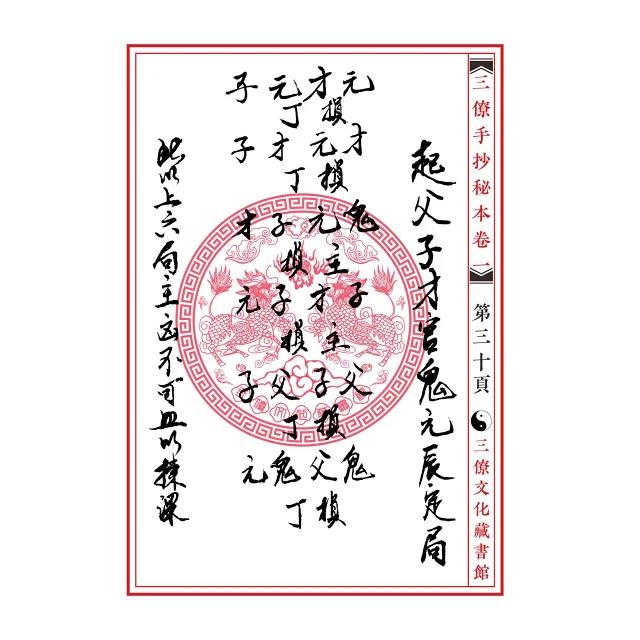 三僚手抄秘本卷一
第三十頁
三僚文化藏書館
起父子才官鬼元辰定局
元才鬼子父鬼
才損元損元主才主子損父損
元丁才丁子損子損父丁鬼丁
子子才元子元
此以上六局主凶不可以揀課